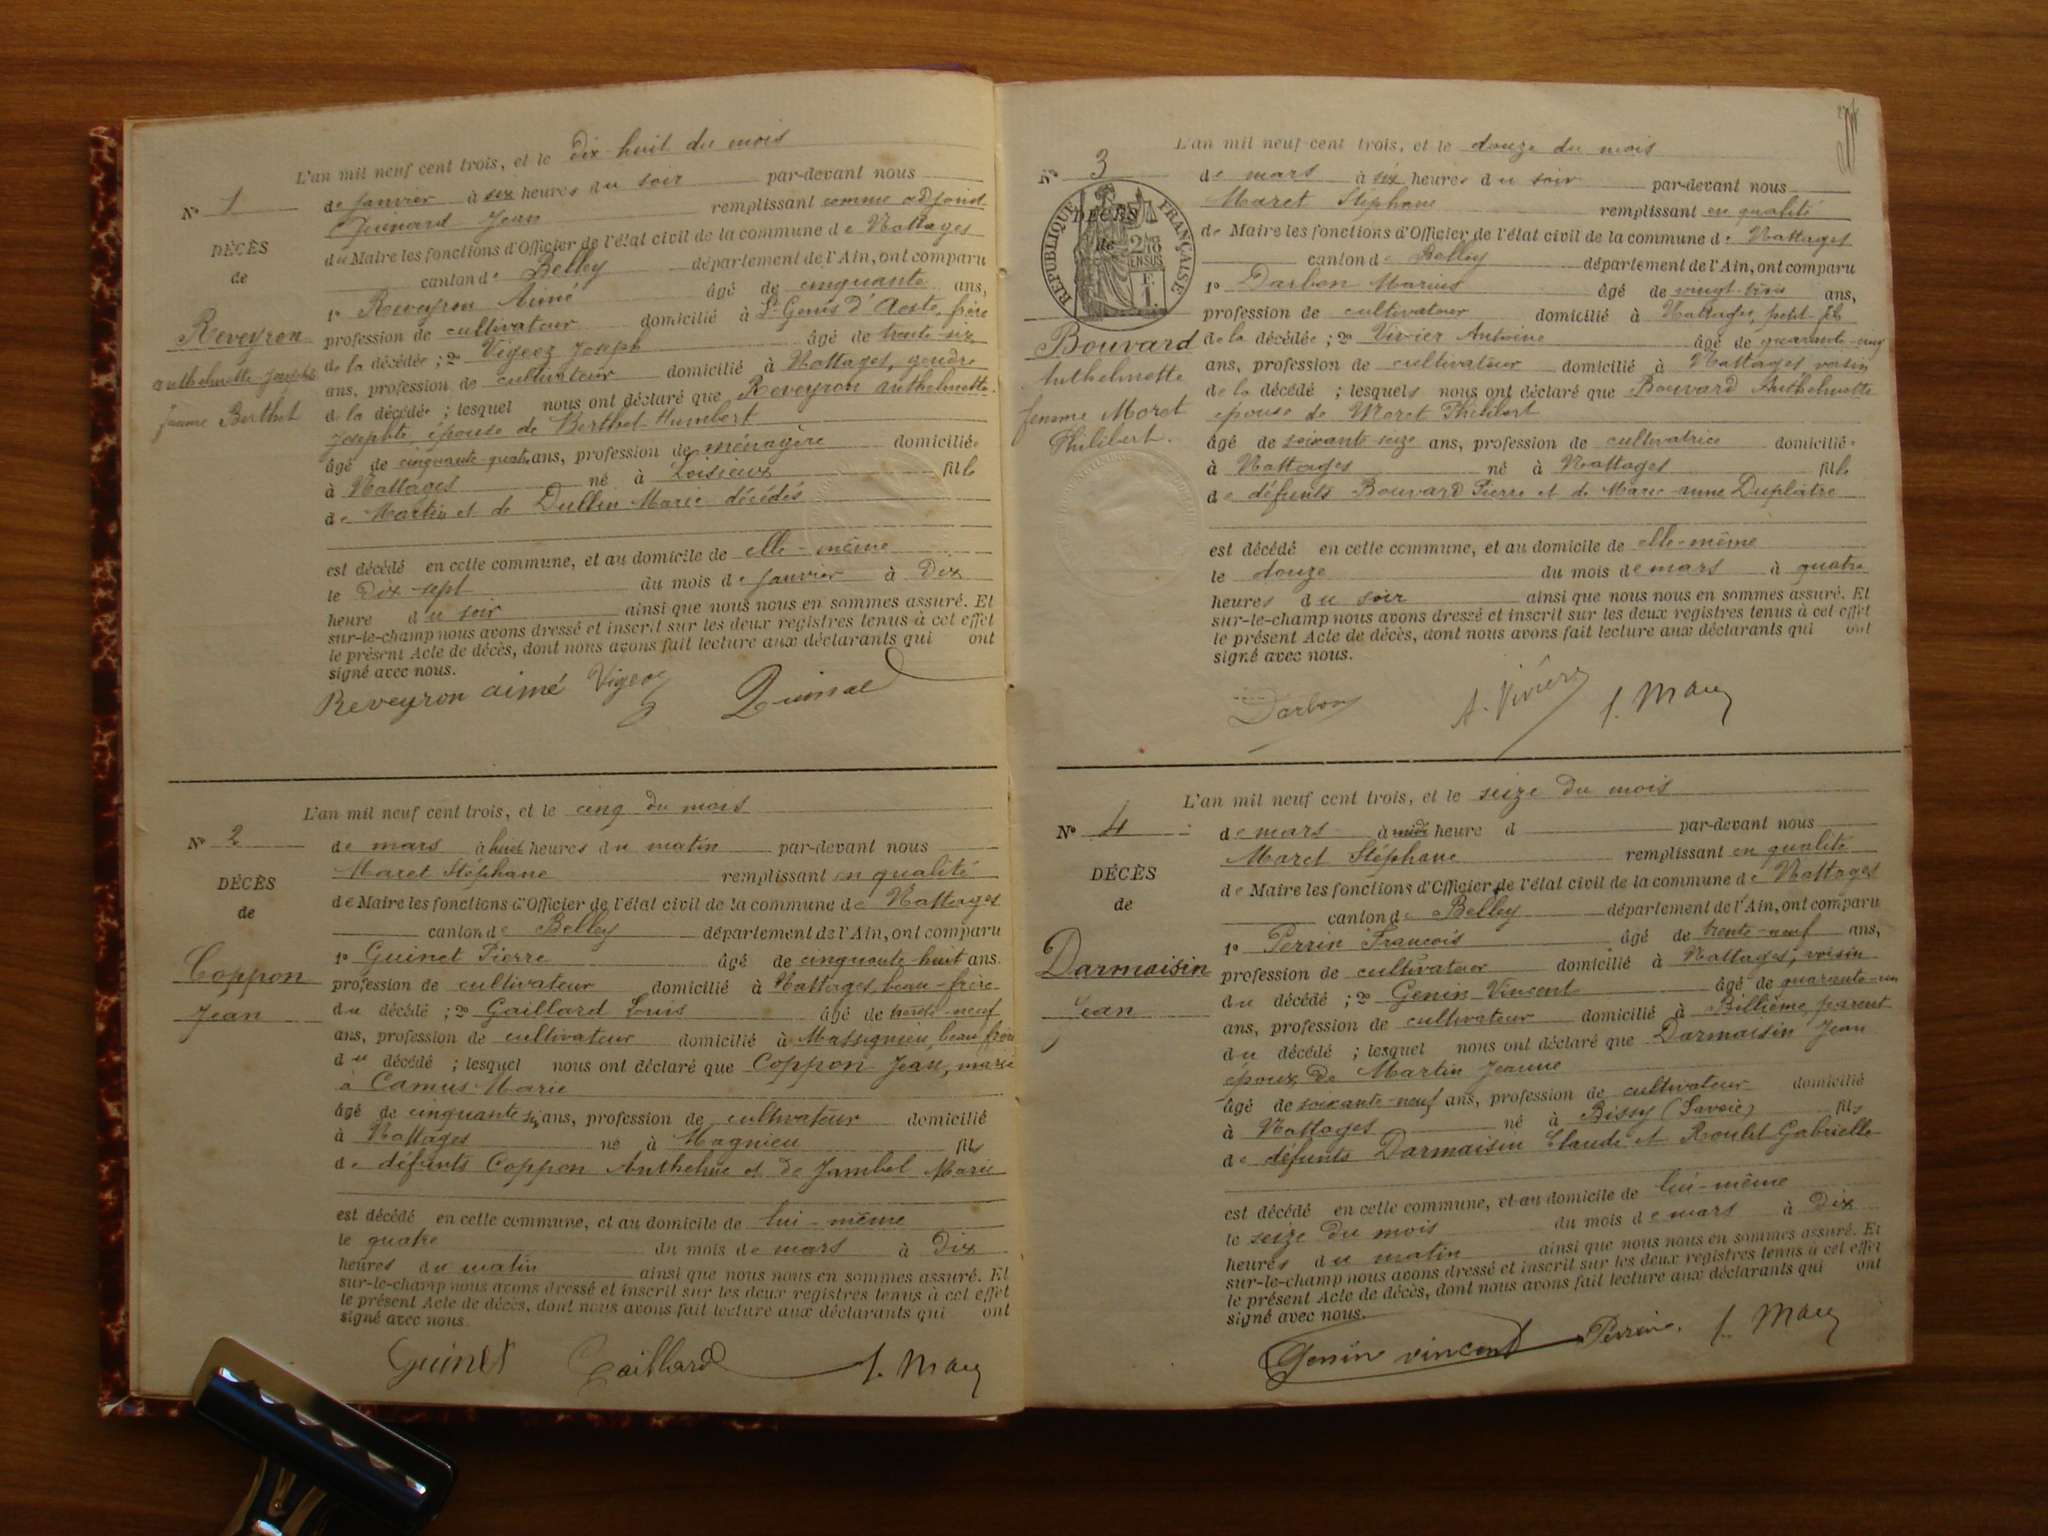 L'an mil neuf cent trois, et le dix-huit du mois
N° 1
de janvier à six heures du soir par-devant nous
Guinard Jean remplissant comme adjoint
DÉCÈS
du Maire les fonctions d'Officier de l'état civil de la commune de Nattages
de
canton de Belley département de l'Ain, ont comparu
1° Reveyron Aimé âgé de cinquante ans,
profession de cultivateur domicilié à St Genis d'Aoste, frère
Reveyron
de la décédée ; 2° Vigeoz Joseph âgé de trente-six
anthelmette Josephte
ans, profession de cultivateur domicilié à Nattages, gendre
femme Berthet
de la décédée ; lesquel nous ont déclaré que Reveyron anthelmette
Josephte, épouse de Berthet Humbert
âgé de cinquante-quatre ans, profession de ménagère domiciliée
à Nattages né à Loisieux fille
de Martin et de Dullin Marie décédés
est décédé en cette commune, et au domicile de elle-même
le Dix-sept du mois de janvier à Dix
heure du soir ainsi que nous nous en sommes assuré. Et
sur-le-champ nous avons dressé et inscrit sur les deux registres tenus à cet effet
le présent Acte de décès, dont nous avons fait lecture aux déclarants qui ont
signé avec nous.
Reveyron aimé Vigeoz
L'an mil neuf cent trois, et le cinq du mois
N° 2
de mars à huit heures du matin par-devant nous
Maret Stéphane remplissant en qualité
DÉCÈS
de Maire les fonctions d'Officier de l'état civil de la commune de Nattages
de
canton de Belley département de l'Ain, ont comparu
1° Guinet Pierre âgé de cinquante-huit ans.
Coppon
profession de cultivateur domicilié à Nattages, beau-frère
Jean
du décédé ; 2° Gaillard Louis âgé de trente-neuf
ans, profession de cultivateur domicilié à Massignieu, beau frère
du décédé ; lesquel nous ont déclaré que Coppon Jean, marié
à Camus Marie
âgé de cinquante six ans, profession de cultivateur domicilié
à Nattages né à Magnieu fils
de défunts Coppon Anthelme et de Jambel Marie
est décédé en cette commune, et au domicile de lui-même
le quatre du mois de mars à Dix
heures du matin ainsi que nous nous en sommes assuré. Et
sur-le-champ nous avons dressé et inscrit sur les deux registres tenus à cet effet
le présent Acte de décès, dont nous avons fait lecture aux déclarants qui ont
signé avec nous.
Guinet Gaillard
L'an mil neuf cent trois, et le douze du mois
N° 3
de mars à six heures du soir par-devant nous
Maret Stéphane remplissant en qualité
RÉPUBLIQUE FRANÇAISE
DÉCÈS
de
de Maire les fonctions d'Officier de l'état civil de la commune de Nattages
canton de Belley département de l'Ain, ont comparu
1° Darbon Marius âgé de vingt-trois ans,
profession de cultivateur domicilié à Nattages, petit-fils
Bouvard
de la décédée ; 2° Vivier Antoine âgé de quarante-cinq
Anthelmette
ans, profession de cultivateur domicilié à Nattages voisin
femme Moret
de la décédé ; lesquels nous ont déclaré que Bouvard Anthelmette
Philibert.
épouse de Moret Philibert
âgé de soixante seize ans, profession de cultivatrice domiciliée
à Nattages né à Nattages fille
de défunts Bouvard Pierre et de Marie-anne Duplatre
est décédé en cette commune, et au domicile de elle-même
le douze du mois de mars à quatre
heures du soir ainsi que nous nous en sommes assuré. Et
sur-le-champ nous avons dressé et inscrit sur les deux registres tenus à cet effet
le présent Acte de décès, dont nous avons fait lecture aux déclarants qui ont
signé avec nous.
Darbon A. Vivier
L'an mil neuf cent trois, et le seize du mois
N° 4
de mars à midi heure d par-devant nous
Maret Stéphane remplissant en qualité
DÉCÈS
de Maire les fonctions d'Officier de l'état civil de la commune de Nattages
de
canton de Belley département de l'Ain, ont comparu
1° Perrin Francois âgé de trente-neuf ans,
Darmaisin
profession de cultivateur domicilié à Nattages, voisin
Jean
du décédé ; 2° Genin Vincent âgé de quarante-un
ans, profession de cultivateur domicilié à Billième parent
du décédé ; lesquel nous ont déclaré que Darmaisin Jean
époux de Martin Jeanne
âgé de soixante-neuf ans, profession de cultivateur domicilié
à Nattages né à Bissy (Savoie) fils
de défunts Darmaisin Claude et Roulet Gabrielle
est décédé en cette commune, et au domicile de lui-même
le seize du mois du mois de mars à Dix
heures du matin ainsi que nous nous en sommes assuré. Et
sur-le-champ nous avons dressé et inscrit sur les deux registres tenus à cet effet
le présent Acte de décès, dont nous avons fait lecture aux déclarants qui ont
signé avec nous.
Genin vincent Perrin.